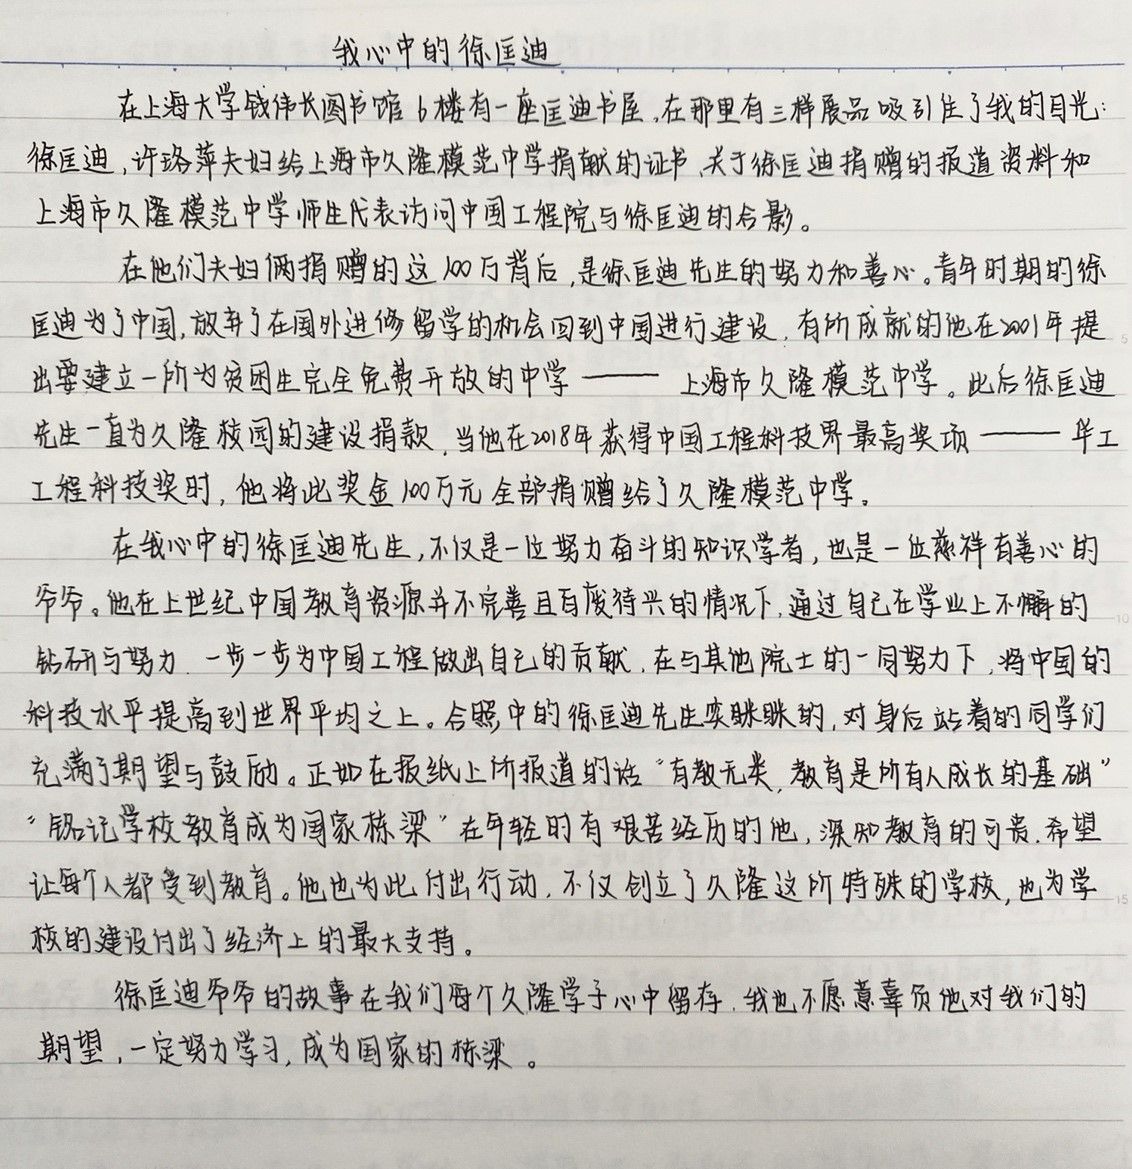 我心中的徐匡迪
在上海大学钱伟长图书馆6楼有一座匡迪书屋,在那里有三样展品吸引住了我的目光:
徐匡迪,许珞萍夫妇给上海市久隆模范中学捐献的证书、关于徐匡迪捐赠的报道资料和
上海市久隆模范中学师生代表访问中国工程院与徐匡迪的合影。
在他们夫妇俩捐赠的这100万背后,是徐匡迪先生的努力和善心。青年时期的徐
匡迪为了中国,放弃了在国外进修留学的机会回到中国进行建设,有所成就的他在2001年提
出要建立一所为贫困生完全免费开放的中学——上海市久隆模范中学。此后徐匡迪
先生一直为久隆校园的建设捐款,当他在2018年获得中国工程科技界最高奖项——华工
工程科技奖时,他将此奖金100万元全部捐赠给了久隆模范中学。
在我心中的徐匡迪先生,不仅是一位努力奋斗的知识学者,也是一位慈祥有善心的
爷爷。他在上世纪中国教育资源并不完善且百废待兴的情况下,通过自己在学业上不懈的
钻研与努力,一步一步为中国工程做出自己的贡献,在与其他院士的一同努力下,将中国的
科技水平提高到世界平均之上。合照中的徐匡迪先生笑眯眯的,对身后站着的同学们
充满了期望与鼓励。正如在报纸上所报道的话“有教无类,教育是所有人成长的基础”
“铭记学校教育成为国家栋梁”在年轻时有艰苦经历的他,深知教育的可贵,希望
让每个人都受到教育。他也为此付出行动,不仅创立了久隆这所特殊的学校,也为学
校的建设付出了经济上的最大支持。
徐匡迪爷爷的故事在我们每个久隆学子心中留存,我也不愿意辜负他对我们的
期望,一定努力学习,成为国家的栋梁。